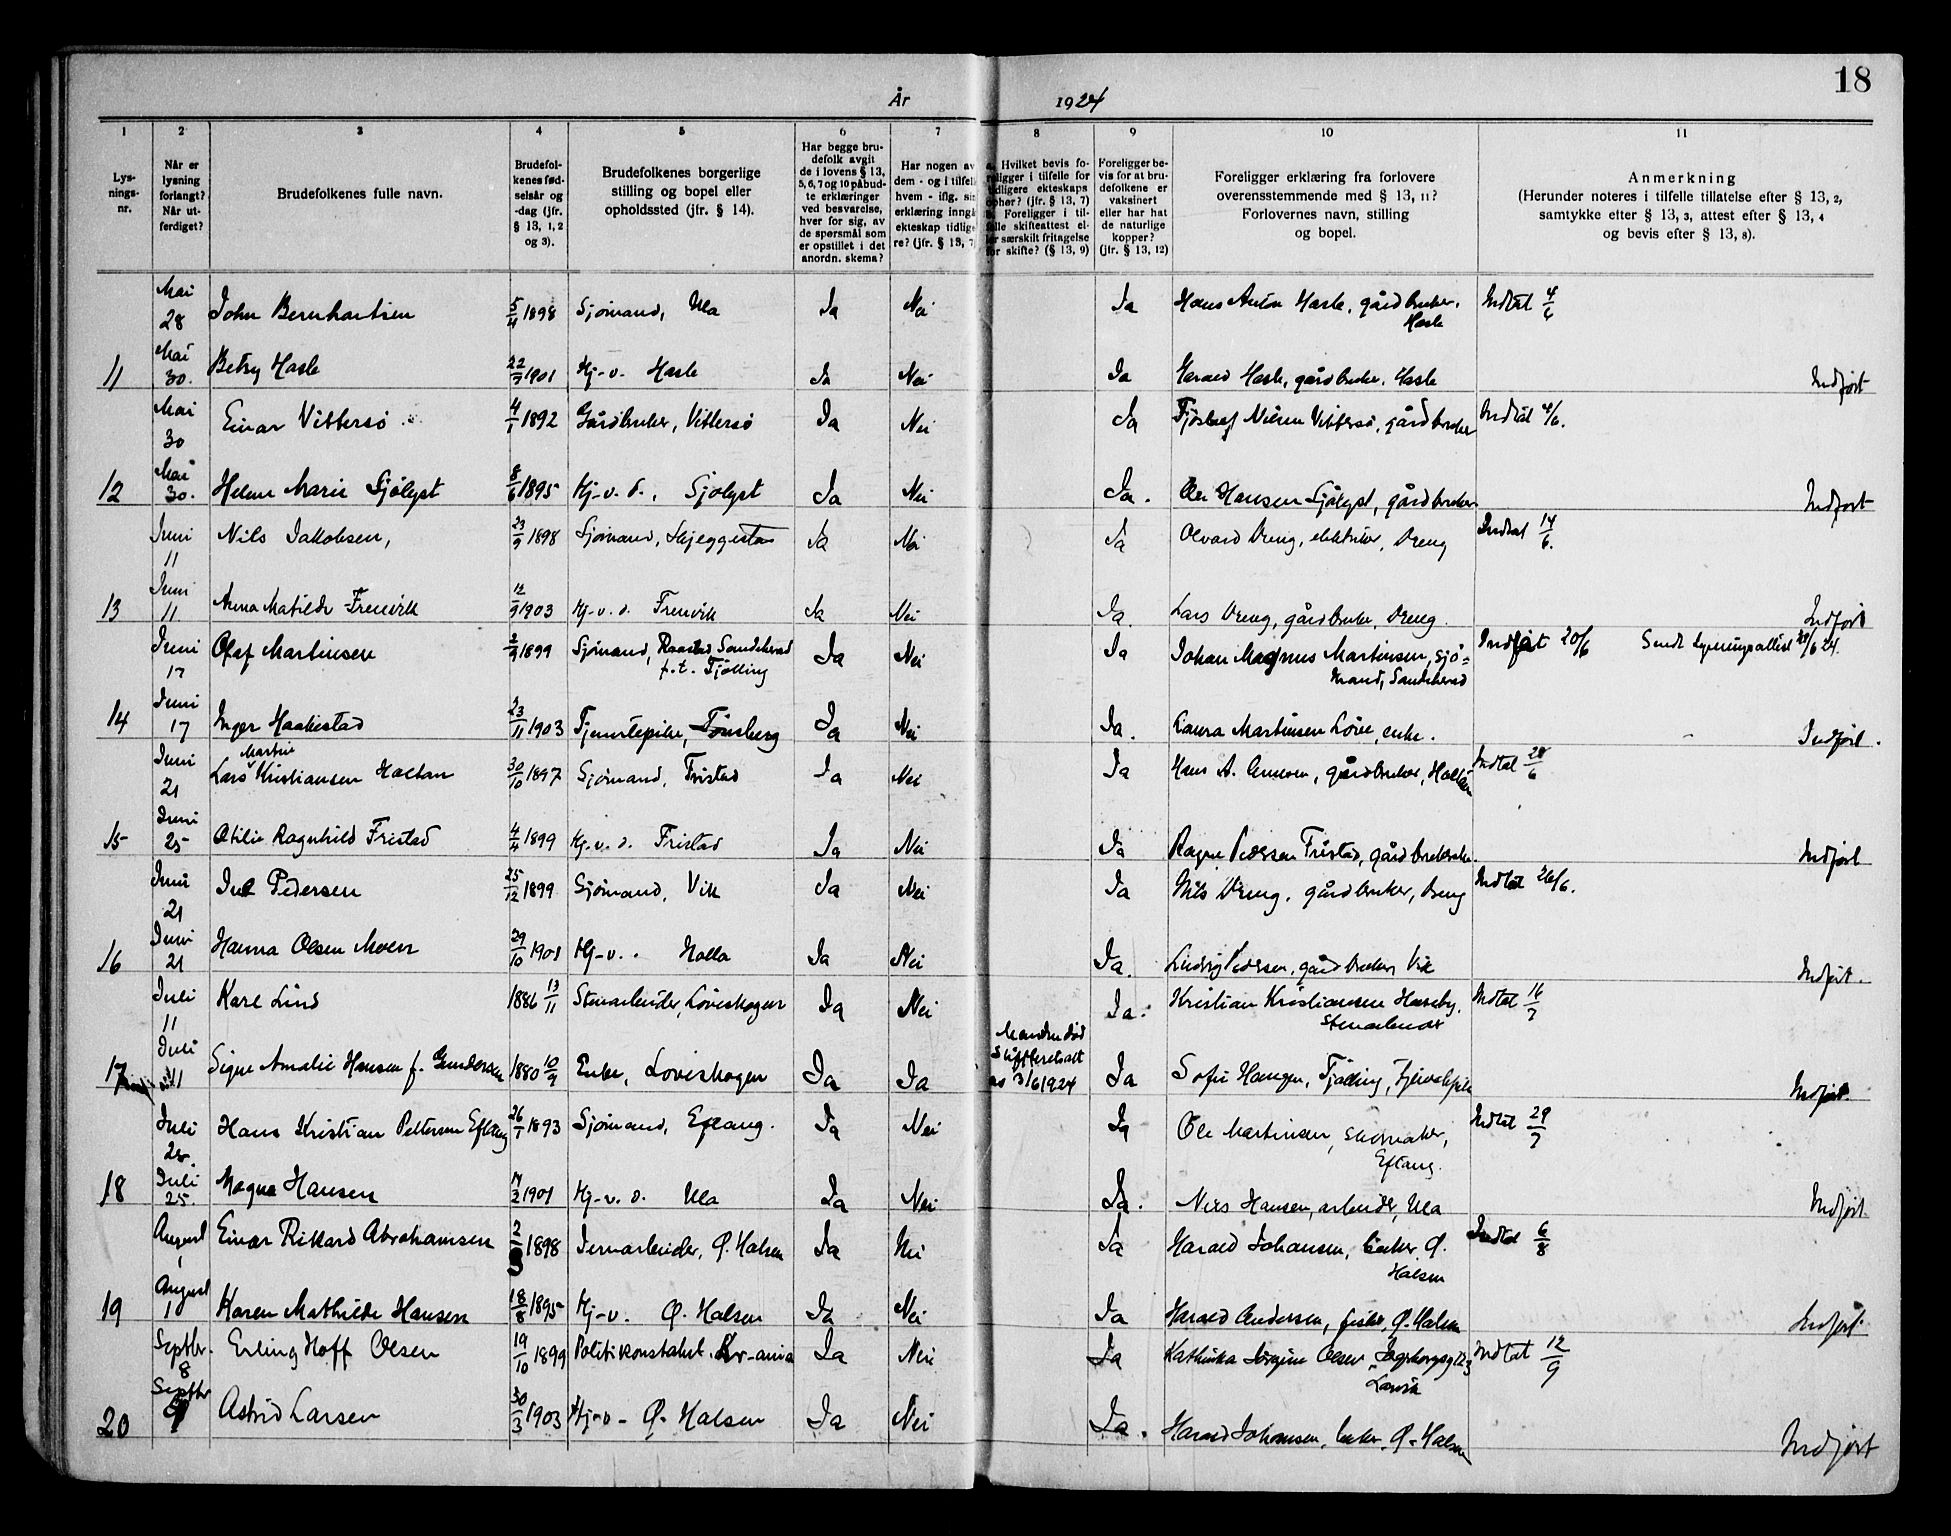 18
År 1924
1 2 3 4 5 6 7 8 9 10 11
Lys-
nings-
nr.
Når er
lysning
forlangt?
Når ut-
ferdiget?
Brudefolkenes fulle navn.
Brudefol-
kenes fød-
selsår og
-dag (jfr.
§ 13, 1, 2
og 3).
Brudefolkenes borgerlige
stilling og bopel eller
opholdssted (jfr. § 14).
Har begge bru-
defolk avgit
de i lovens § 13,
5, 6, 7 og 10 påbud-
te erklæringer
ved besvarelse,
hver for sig, av
de spørsmål som
er opstillet i det
anordn. skema?
Har nogen av
dem - og i tilfelle
hvem - iflg. sin
erklæring inngå
ekteskap tidlige
re? (jfr. § 13, 7)
a. Hvilket bevis fo-
religger i tilfelle for
tidligere ekteskaps
opher? (jfr. § 13, 7)
Foreligger i til-
felle skifteattest el-
ler særskilt fritagelse
for skifte? (§ 13, 9)
Foreligger be-
vis for at bru-
defolkene er
vaksinert
eller har hat
de naturlige
kopper?
(jfr. § 13, 12)
Foreligger erklæring fra forlovere
overensstemmende med § 13, 11?
Forlovernes navn, stilling
og bopel.
Anmerkning
(Herunder noteres i tilfelle tillatelse efter § 13, 2,
samtykke efter § 13, 3, attest efter § 13, 4
og bevis efter § 13, 8).
Mai 28 John Bernhartsen 5/4 1898 Sjømand, Ula Ja Nei Ja Hans Anton Hasle, gårdbruker, Hasle Indtat 4/6
11 Mai 30. Betsy Hasle 22/7 1901 Hj-v. Hasle Ja Nei Ja Harald Hasle, gårdbruker, Hasle Indført
Mai 30 Einar Vittersø 4/1 1892 Gårdbruker, Vittersø Ja Nei Ja Nilsen Vittersø, gårdbruker Indtat 4/6.
12 Mai 30. Helene Marie Sjølyst 8/6 1895 Hj-v. d., Sjølyst Ja Nei Ja. Ole Hansen Sjølyst, gårdbruker Indført
Juni 11 Nils Jakobsen, 23/9 1898 Sjømand, Skjeggestad Ja Nei Ja Olvard Vreng, elektriker, Vreng Indtat 14/6.
13 Juni 11 Anna Matilde Fremvik 12/9 1903 Hj-v. d. Fremvik Ja Nei Ja. Lars Vreng, gårdbruker, Vreng. Indført
Juni 17 Olaf Martinsen 2/9 1899 Sjømand, Raastad Sandeherad
p.t. Tjølling Ja Nei Ja Johan Magnus Martinsen, sjø=
mand, Sandeherad Indført 20/6 Sendt lysningsattest 24.
14 Juni 17 Inger Haakestad 23/11 1903 Tjenestepike, Tønsberg Ja Nei Ja. Laura Martinsen Løve, enke. Indført.
Juni 21 Lars Martin Kristiansen Holtan 30/10 1897 Sjømand, Fristad Ja Nei Ja Hans A. gårdbruker, Holtan Indtat 28/6
15 Juni 25 Otilie Ragnhild Fristad 4/4 1899 Hj-v. d. Fristad Ja Nei Ja Ragnv Pedersen Fristad, gårdbruker. Indført
Juni 21 Juel Pedersen 25/12 1899 Sjømand, Vik Ja Nei Ja Nils Vreng, gårdbruker, Vreng Indtat 26/6.
16 Juni 21 Hanna Olsen Moen 29/10 1901 Hj-v.. Holla Ja Nei Ja. Ludvig Pedersen, gårdbruker, Vik Indført.
Juli 11 Karl Lind 1886 13/11 Stenarbeider, Løveskogen Ja Nei Ja. Kristian Kristiansen Haneby,
stenarbeider Indtat 16/7
17 Juli 11 Signe Amalie Hansen f. Gundersen 1880 10/9 Enke, Løveskogen Ja Ja Manden død
3/6 1924 Ja Sofie Haugen, Tjølling, Indført.
Juli 25. Hans Kristian Pettersen Eftang 26/1 1893 Sjømand, Eftang. Ja Nei Ja Ole Martinsen, skomaker,
Eftang. Indtat 29/7
18 Juli 25. Magna Hansen 1901 Hj-v. d. Ula Ja Nei Ja. Nils Hansen, arbeider, Ula Indført
August 1 Einar Rikard Abrahamsen 2/3 1898 Jernarbeider, Ø. Halsen Ja Nei Ja Harald Johansen, Ø.
Halsen Indtat 6/8
19 August 1 Karen Mathilde Hansen 18/8 1895 Hj-v. Ø. Halsen Ja Nei Ja Harald Andersen, fisker, Ø. Halsen Indført
Septbr. 8 Erling Hoff Olsen 19/10 1899 Politikonstabel. Kr-ania Ja Nei Ja Kathinka Jørgine Olsen
Larvik Indtat 12/9
20 Septbr 9 Astrid Larsen 30/3 1903 Hj-v- Ø. Halsen Ja Nei Ja. Harald Johansen, Ø. Halsen Indført